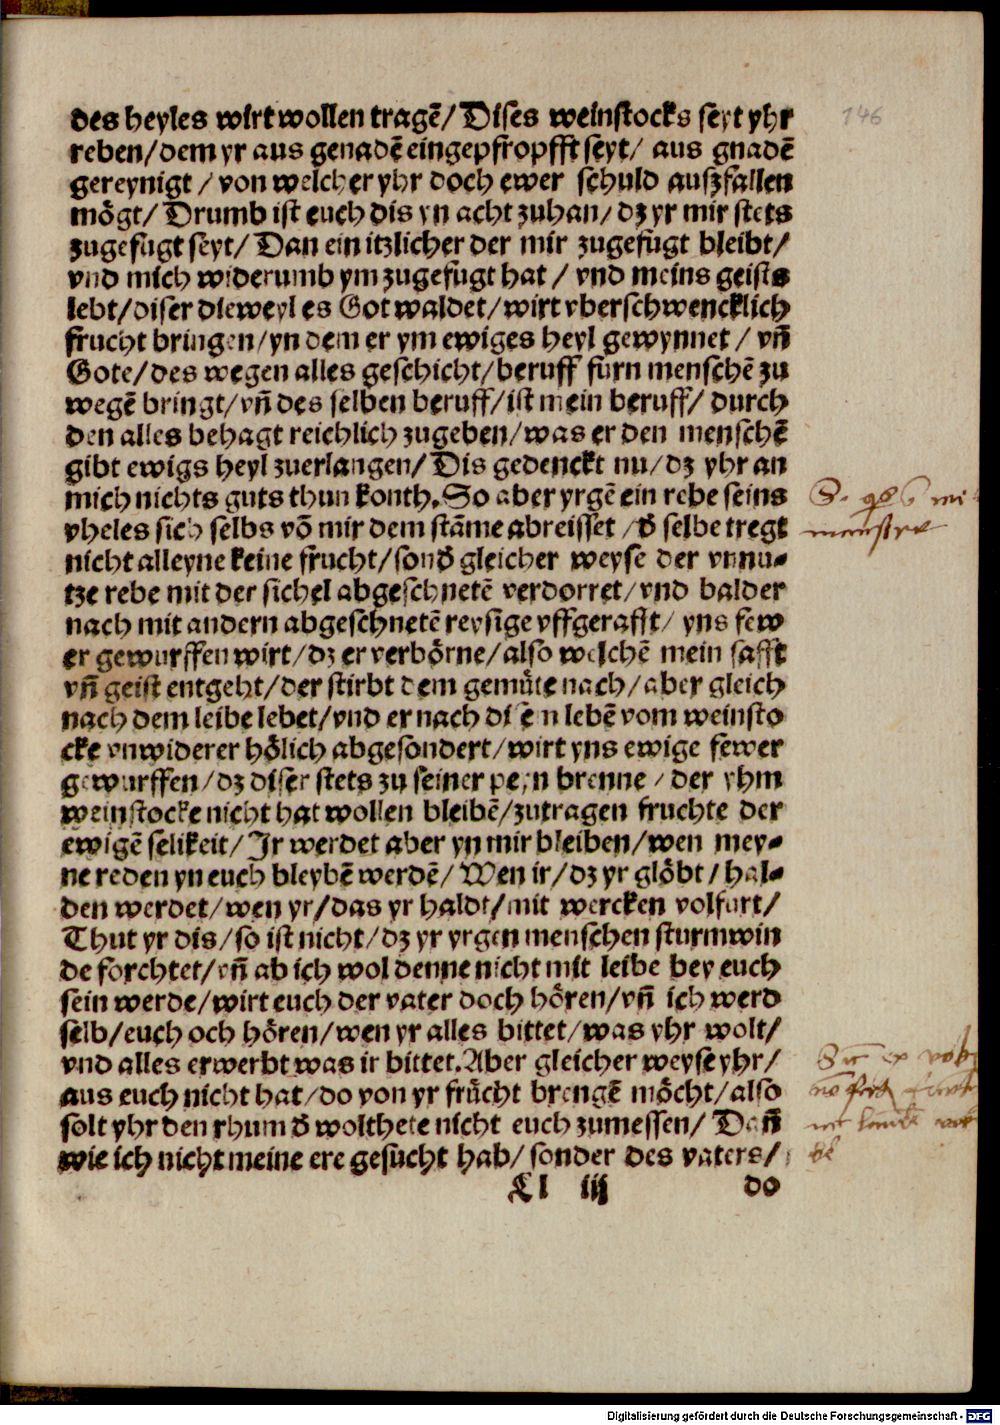 des heyles wirt wollen tragē/ Dises weinstocks seyt yhr
146
reben/ dem yr aus genadē eingepfropfft seyt/ aus gnadē
gereynigt / von welcher yhr doch ewer schuld auszfallen
mögt/ Drumb ist euch dis yn acht zuhan/ dz yr mir stets
zugefugt seyt/ Dan ein itzlicher der mir zugefugt bleibt/
vnd mich widerumb ym zugefugt hat / vnd meins geists
lebt/ diser dieweyl es Got waldet/ wirt vberschwencklich
frucht bringen/ yn dem er ym ewiges heyl gewynnet / vñ
Gote/ des wegen alles geschicht/ beruff furn menschē zu
wegē bringt/ vñ des selben beruff/ ist mein beruff/ durch
den alles behagt reichlich zugeben/ was er den menschē
gibt ewigs heyl zuerlangen/ Dis gedenckt nu/ dz yhr an
mich nichts guts thun konth. So aber yrgē ein rebe seins
vheles sich selbs võ mir dem stāme abreisset / d̄ selbe tregt
nicht alleyne keine frucht/ sond̄ gleicher weyse der vnnu-
tze rebe mit der sichel abgeschnetē verdorret/ vnd balder
nach mit andern abgeschnetē reysige vffgerafft/ yns few
er gewurffen wirt/ dz er verbörne/ also welchē mein safft
vñ geist entgeht/ der stirbt dem gemüte nach/ aber gleich
nach dem leibe lebet/ vnd er nach disē n lebē vom weinsto
cke vnwiderer hölich abgesondert/ wirt yns ewige fewer
gewurffen/ dz diser stets zu seiner peyn brenne / der yhm
weinstocke nicht hat wollen bleibē/ zutragen fruchte der
ewigē selikeit/ Jr werdet aber yn mir bleiben/ wen mey-
ne reden yn euch bleybē werdē/ Wen ir/ dz yr glöbt/ hal-
den werdet/ wen yr/ das yr haldt/ mit wercken volfurt/
Thut yr dis/ so ist nicht/ dz yr yrgen menschen sturmwin
de forchtet/ vñ ab ich wol denne nicht mit leibe bey euch
sein werde/ wirt euch der vater doch hören/ vñ ich werd
selb/ euch och hören/ wen yr alles bittet/ was yhr wolt/
vnd alles erwerbt was ir bittet. Aber gleicher weyse yhr/
aus euch nicht hat/ do von yr frücht brengē möcht/ also
solt yhr den rhum d̄ wolthete nicht euch zumessen/ Dañ
wie ich nicht meine ere gesücht hab/ sonder des vaters/
Ll iij do
Digitalisierung gefördert durch die Deutsche Forschungsgemeinschaft - DFG